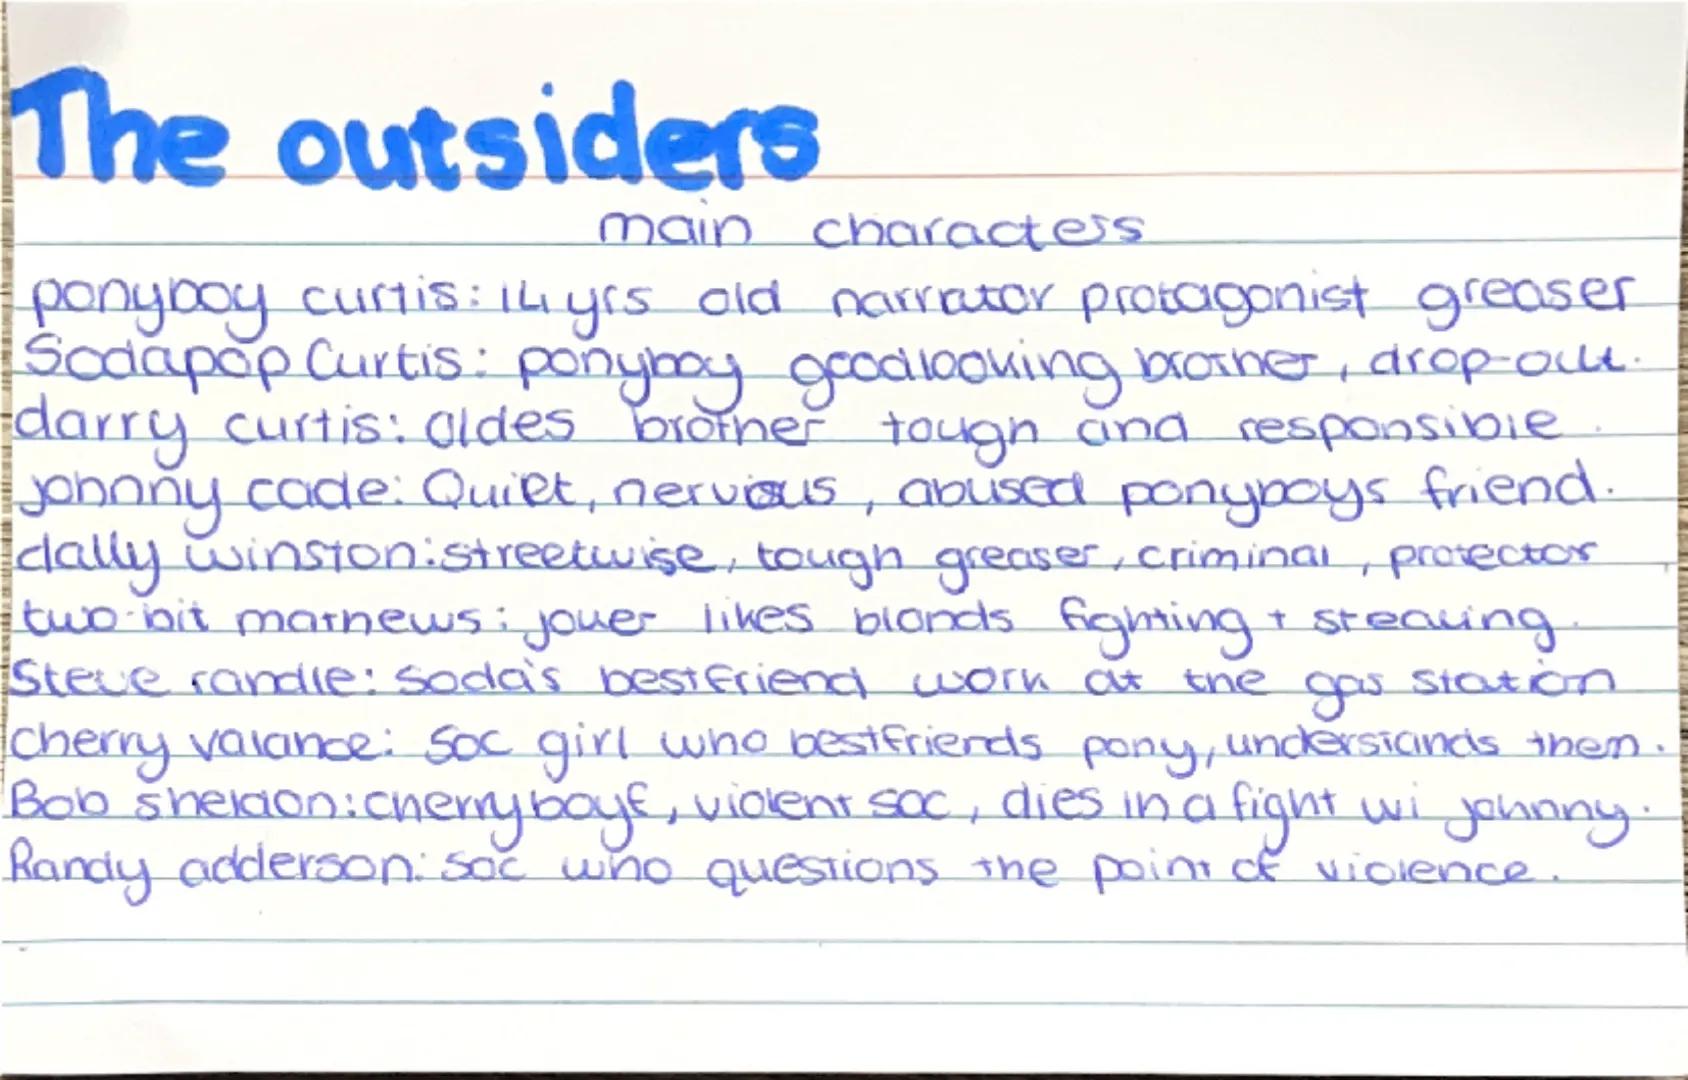 The outsiders
main characters
ponyboy curtis: 14 yrs old narrator protagonist greaser
Sodapop Curtis: ponyboy goodlooking brother, drop-out.
darry curtis: oldes brother tough and responsible.
johnny cade: Quiet, nervious, abused ponyboys friend.
dally winston: streetwise, tough greaser, criminal, protector
two-bit mathews: joker likes blonds fighting + stealing.
Steve randle: soda's bestfriend work at the gas station
cherry valance: soc girl who bestfriends pony, understands them.
Bob sheldon: cherry boyf, violent soc, dies in a fight wi johnny.
Randy adderson: soc who questions the point of violence.